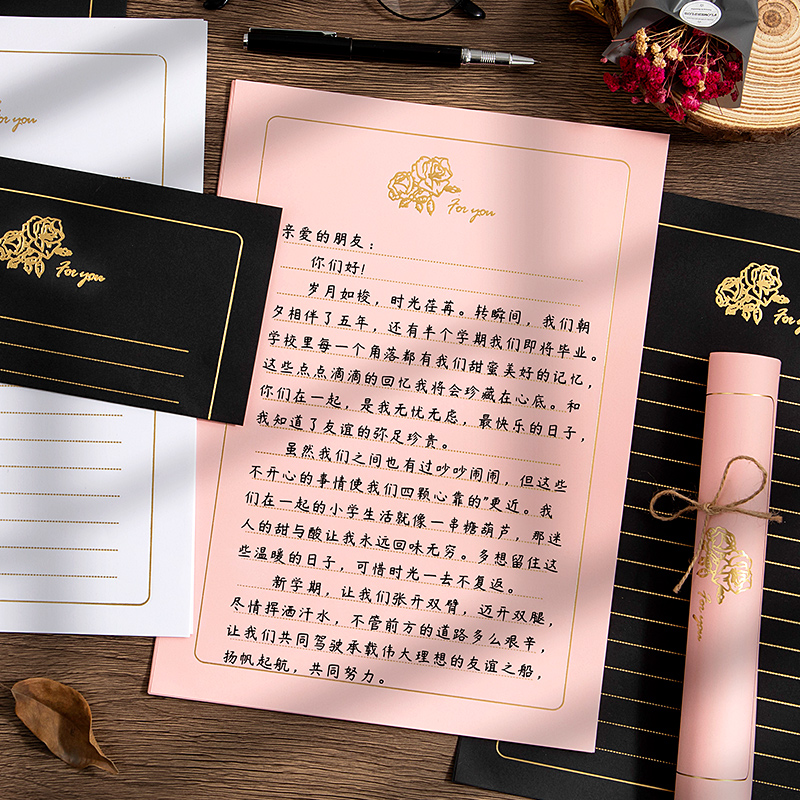 For you
亲爱的朋友：
你们好！
岁月如梭，时光荏苒。转瞬间，我们朝
夕相伴了五年，还有半个学期我们即将毕业。
学校里每一个角落都有我们甜蜜美好的记忆，
这些点点滴滴的回忆我将会珍藏在心底。和
你们在一起，是我无忧无虑，最快乐的日子，
我知道了友谊的弥足珍贵。
虽然我们之间也有过吵吵闹闹，但这些
不开心的事情使我们四颗心靠的"更近。我
们在一起的小学生活就像一串糖葫芦，那迷
人的甜与酸让我永远回味无穷。多想留住这
些温暖的日子，可惜时光一去不复返。
新学期，让我们张开双臂，迈开双腿，
尽情挥洒汗水，不管前方的道路多么艰辛，
让我们共同驾驶承载伟大理想的友谊之船，
扬帆起航，共同努力。
For you
For you
For you